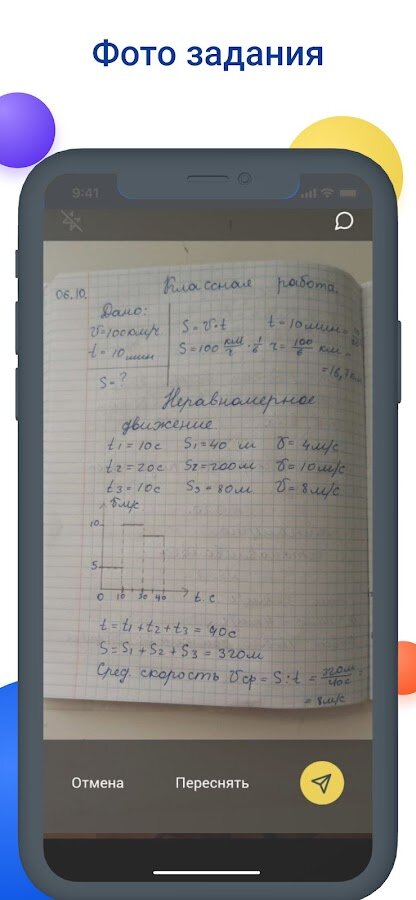 Фото задания
9:41
06.10. Классная работа.
Дано:
v=100км/ч S=v·t t=10мин=
t=10мин S=100 км/ч · 1/6 ч = 100/6 км =
=16,7км
S=?
Неравномерное
движение
t1=10с S1=40 м v=4м/с
t2=20с S2=200м v=10м/с
t3=10с S3=80м v=8м/с
v м/с
10
5
0 10 30 40 t.с
t=t1+t2+t3=40с
S=S1+S2+S3=320м
Сред. скорость vср=S:t=320м/40с=
=8м/с
Отмена Переснять